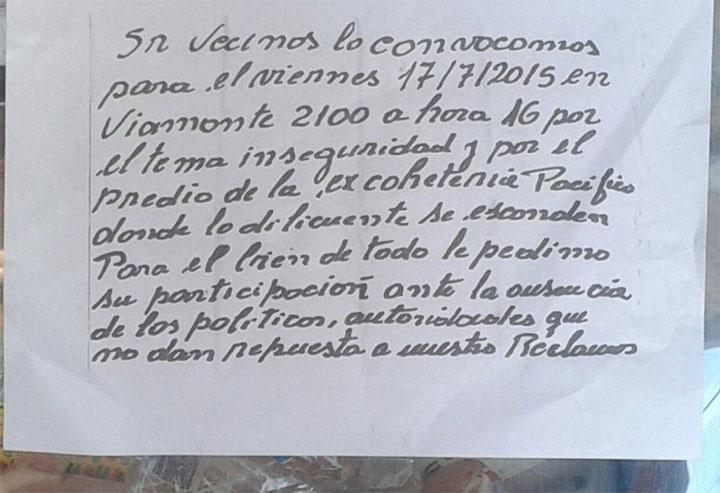 Sr vecinos lo convocamos
para el viernes 17/7/2015 en
Viamonte 2100 a hora 16 por
el tema inseguridad y por el
predio de la ex coheteria Pacifico
donde lo dilicuente se esconden
Para el bien de todo le pedimo
su participacion ante la ausencia
de los politicos, autoridades que
no dan repuesta a nuestro Reclamos